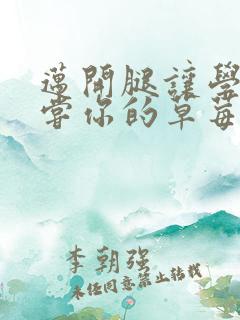 邁開腿讓學
當你的草莓
李朝强
未经同意禁止转载